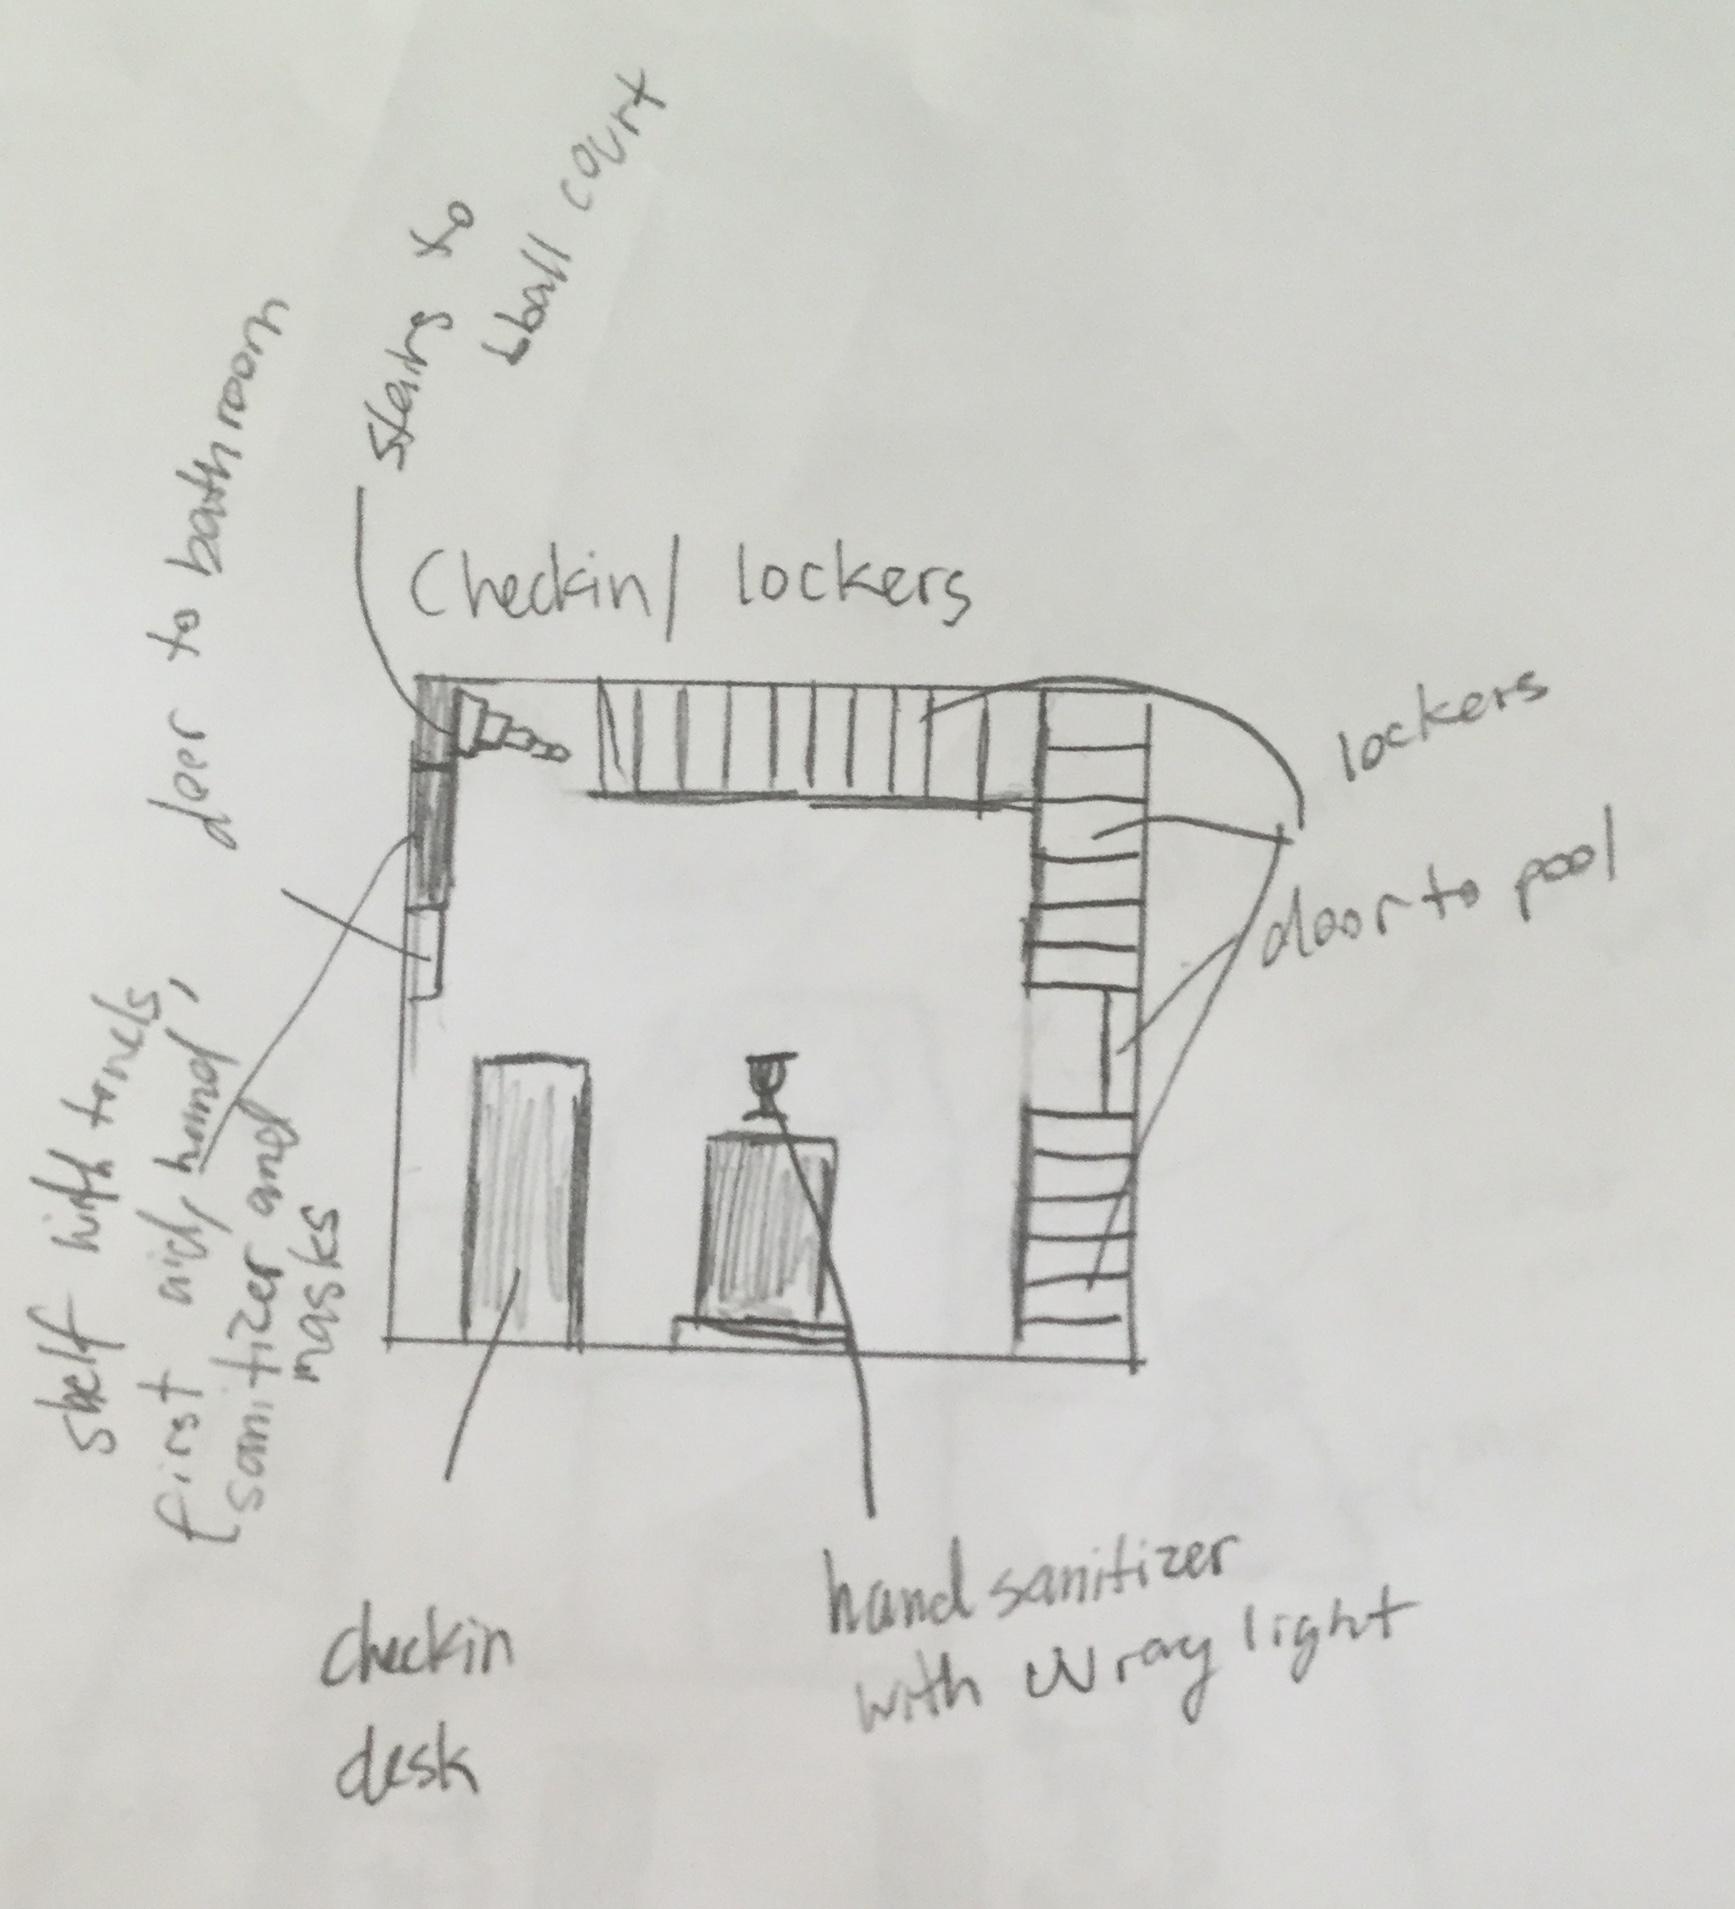 stairs to
bball court
door to bathroom
Checkin/ lockers
lockers
door to pool
shelf with towels,
first aid, hand,
sanitizer and
masks
checkin
desk
hand sanitizer
with UV ray light